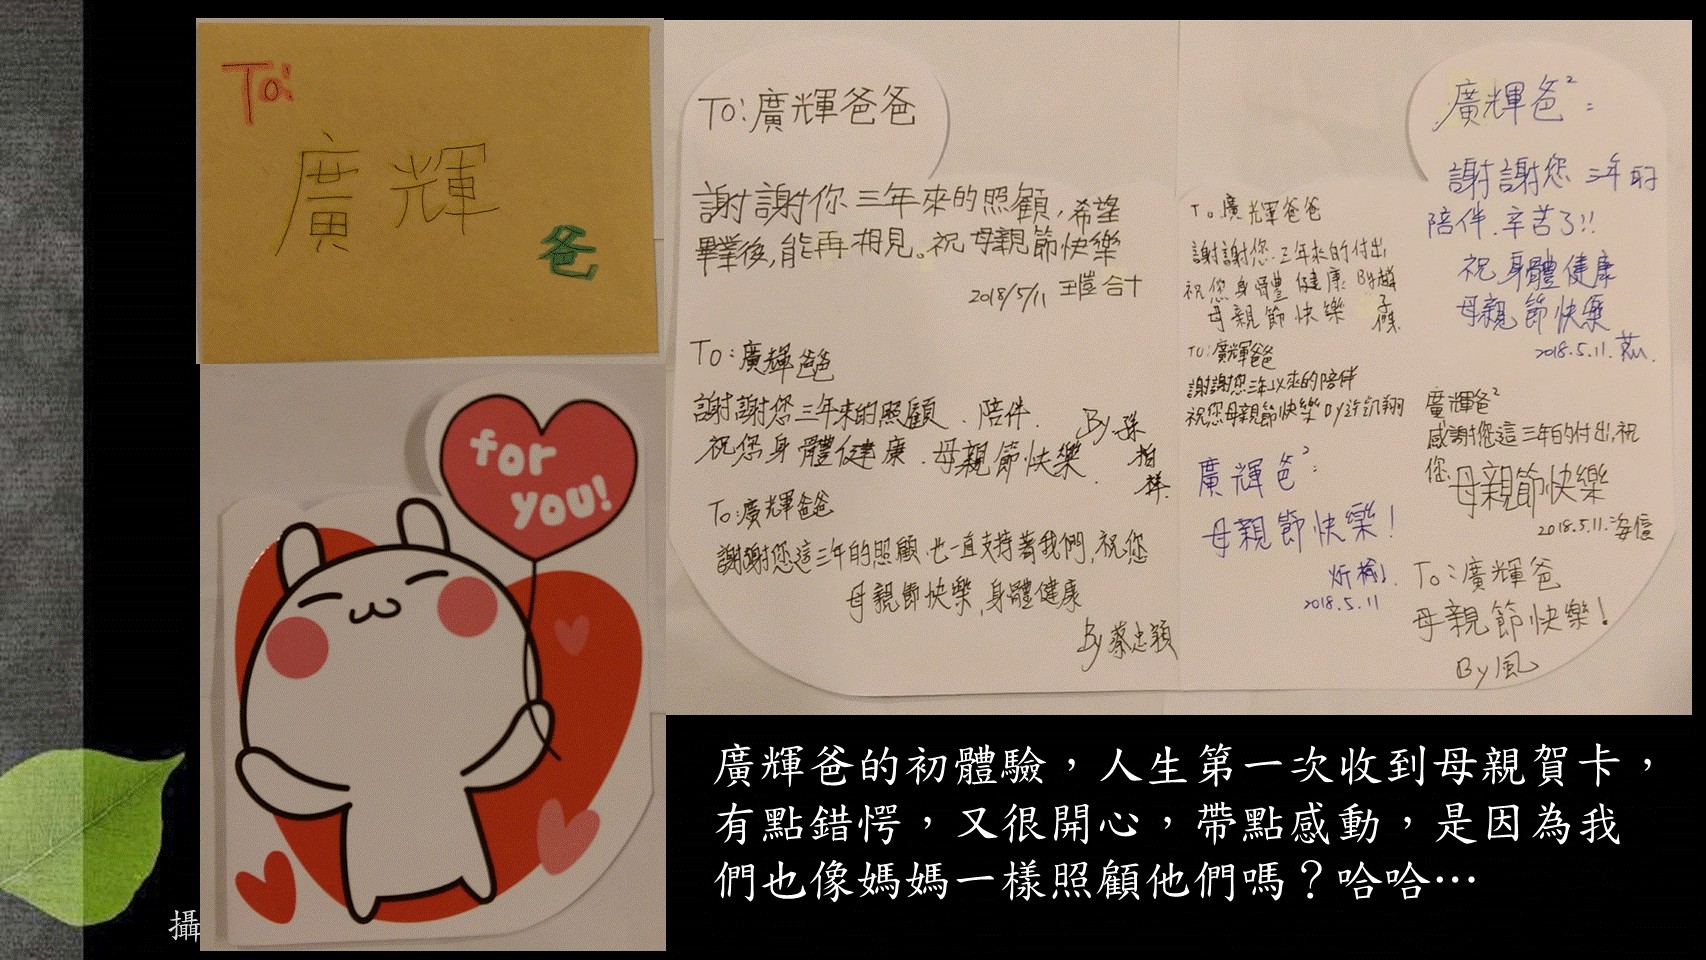 To:
廣輝
爸
for
you!
To:廣輝爸爸
謝謝你三年來的照顧,希望
畢業後,能再相見。祝母親節快樂
2018/5/11
To:廣輝爸爸
謝謝您三年來的照顧、陪伴.
祝您身體健康、母親節快樂.
By.孫
柏
To:廣輝爸爸
謝謝您這三年的照顧,也一直支持著我們,祝您
母親節快樂,身體健康
By 蔡忠穎
To.廣輝爸爸
謝謝您三年來的付出
祝您身體健康 By
母親節快樂
TO:廣輝爸爸
謝謝您三年以來的陪伴
祝您母親節快樂 By 許凱翔
廣輝爸²:
母親節快樂!
2018.5.11
廣輝爸²:
謝謝您三年的
陪伴.辛苦了!!
祝身體健康
母親節快樂
2018.5.11.
廣輝爸²
感謝您這三年的付出,祝
您母親節快樂
2018.5.11.
To:廣輝爸
母親節快樂!
By 風
廣輝爸的初體驗,人生第一次收到母親賀卡,
有點錯愕,又很開心,帶點感動,是因為我
們也像媽媽一樣照顧他們嗎?哈哈…
攝